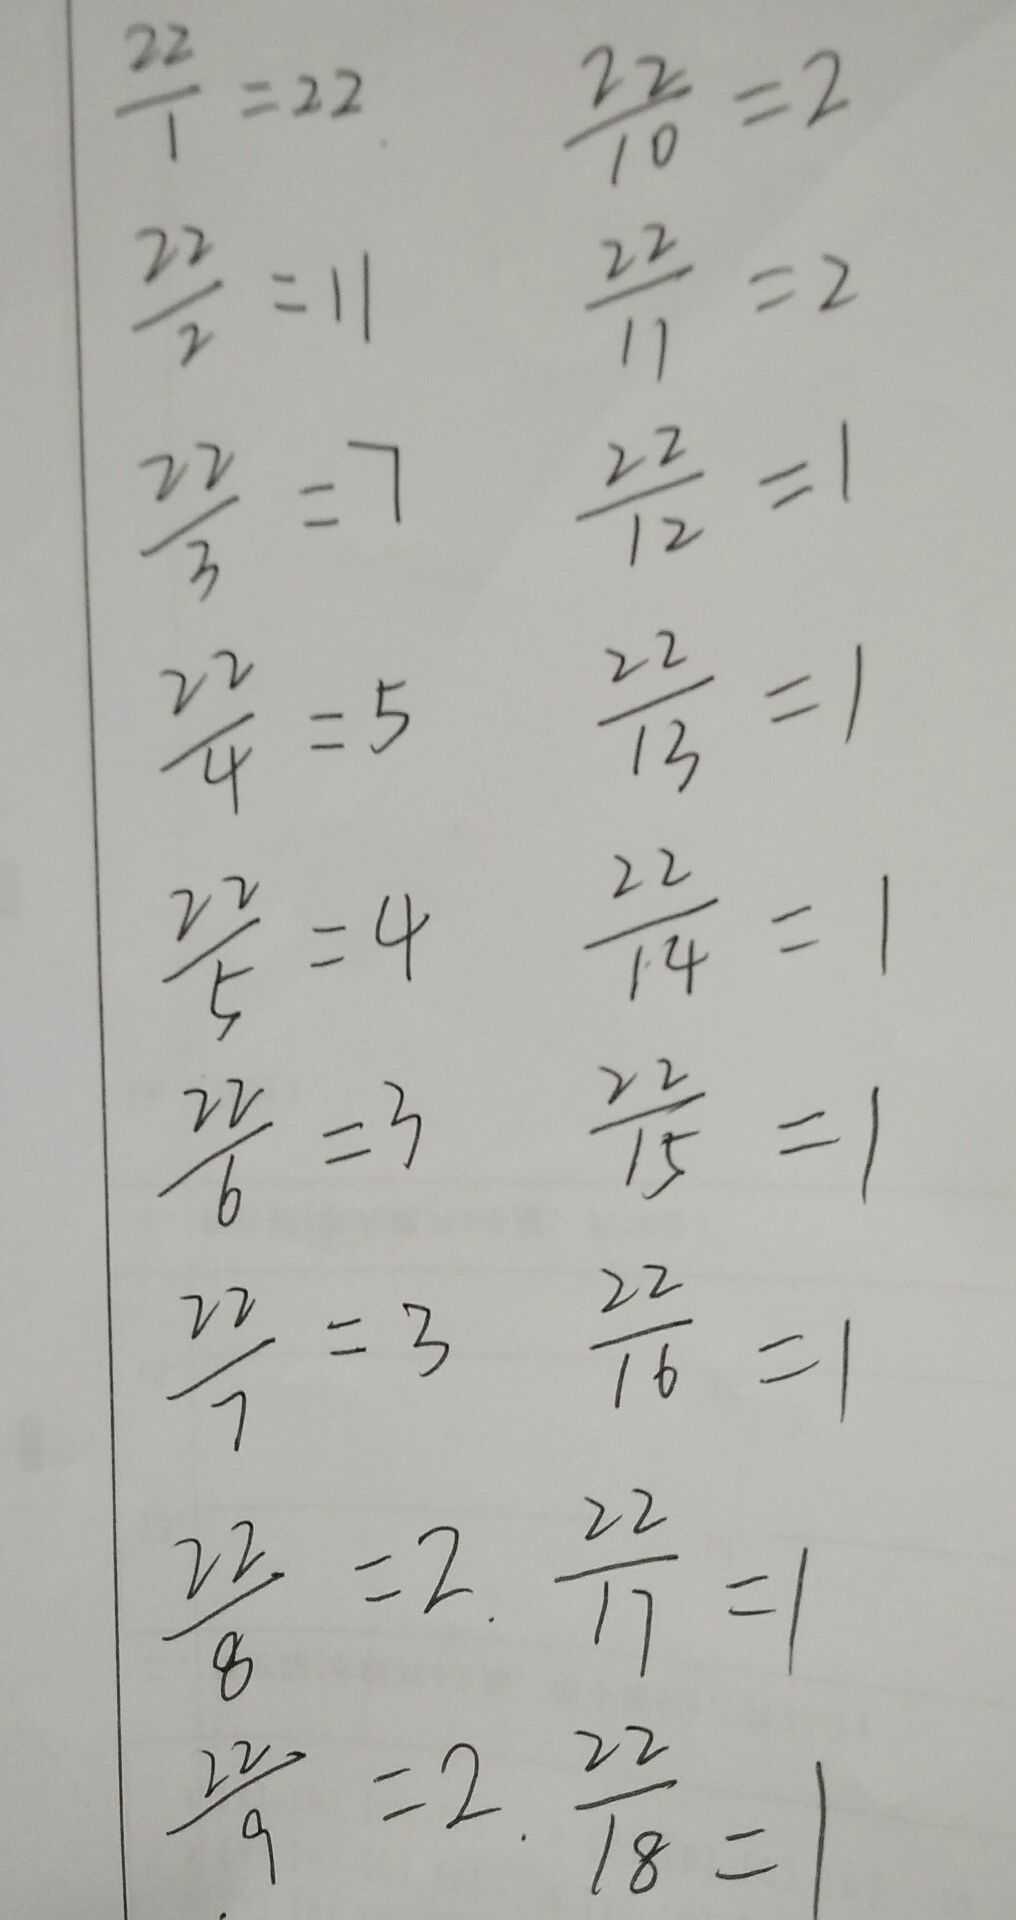 22/1 = 22
22/2 = 11
22/3 = 7
22/4 = 5
22/5 = 4
22/6 = 3
22/7 = 3
22/8 = 2.
22/9 = 2.
22/10 = 2
22/11 = 2
22/12 = 1
22/13 = 1
22/14 = 1
22/15 = 1
22/16 = 1
22/17 = 1
22/18 = 1